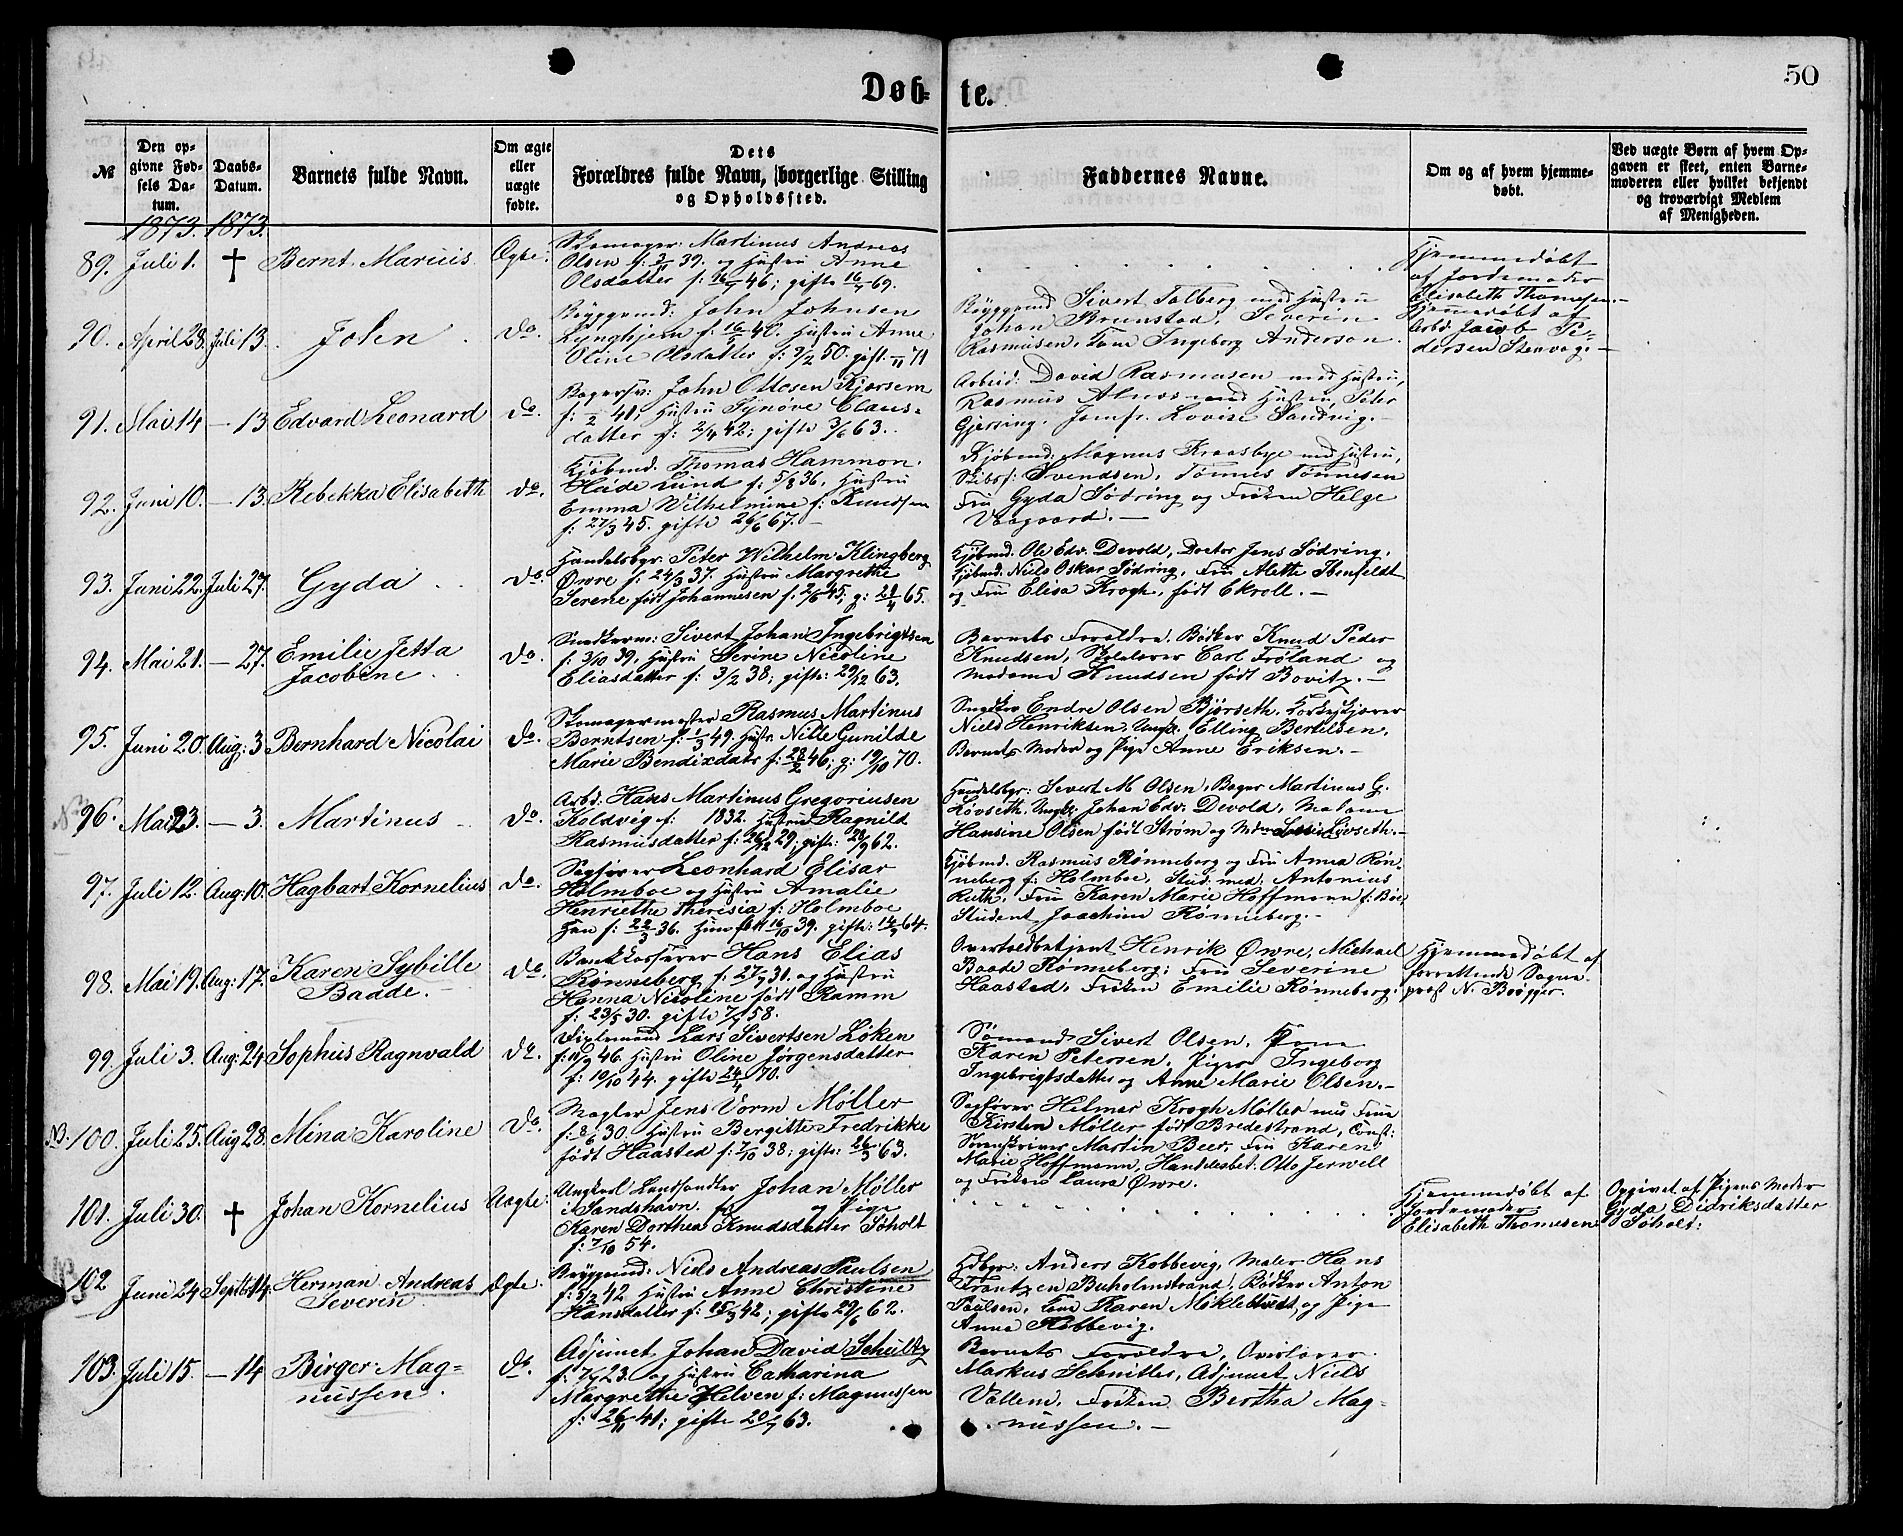 50
Døb-te.
№
Den op-
givne Fød-
sels Da-
tum.
Daabs-
Datum.
Barnets fulde Navn.
Om ægte
eller
uægte
fødte.
Dets
Forældres fulde Navn, borgerlige Stilling
og Opholdssted.
Faddernes Navne.
Om og af hvem hjemme-
døbt.
Ved uægte Børn af hvem Op-
gaven er skeet, enten Barne-
moderen eller hvilket bekjendt
og troværdigt Medlem
af Menigheden.
1873. 1873.
89. Juli 1. † Bernt Marius Ægte.
Skomager: Martinus Andreas
Olsen f: 39. og Hustru Anne
Olsdatter f: 46; gift 69.
Hjemmedøbt
af Jordemoder
Elisabeth Thomesen.
90. April 28. Juli 13. John do.
Bryggmd: John Johnsen
Lynghjem f: 40. Hustru Anne
Oline Olsdatter f: 9/2 50. gift 71
Bryggmd Sivert Talberg med Hustru
Johan Brunstad, Severin
Rasmusen, Ingeborg Anderson.
Hjemmedøbt af
Arbd. Jacob Pe-
dersen Stenvog.
91. Mai 14 — 13 Edvard Leonard do.
Bagersv: John Ottesen Kjorsem
f: 41, Hustru Synøve Claus-
datter f: 2/4 42; gifte 3/6 63.
Arbeid: David Rasmusen med Hustru,
Rasmus Alnes med Hustru, Peter
Gjersing. Jomfr. Lovise Sandvig.
92. Juni 10. — 13. Rebekka Elisabeth do.
Kjøbmd. Thomas Hammon
Heide Lund f: 5/8 36, Hustru
Emma Wilhelmine f: Knudsen
f: 27/3 45. gifte 26/6 67.
Kjøbmd: Magnus Kraasbye med Hustru,
Skibsf: Svendsen, Tønnes Tønnesen
Fru Gyda Sødring og Frøken Helge
Vaagaard.
93. Juni 22. Juli 27. Gyda do.
Handelsbgr: Peter Wilhelm Klingberg
Øwre f: 24/3 37. Hustru Margrethe
Serene født Johannesen f. 2/6 45, g: 65.
Kjøbmd: Ole Edv. Devold, Doctor Jens Sødring,
Kjøbmd: Niels Oskar Sødring, Fru Alette Ibenfeldt
og Fru Elisa Krogh, født Ekroll.
94. Mai 21. — 27. Emilie Jetta
Jacobine do.
Snedkerm: Sivert Johan Ingebrigtsen
f: 3/10 39, Hustru Serine Nicoline
Eliasdatter f: 3/2 38; gifte: 29/12 63.
Barnets Forældre. Bødker Knud Peder
Knudsen, Skolelærer Carl Frøland og
Madame Knudsen født Bovitz.
95. Juni 20. Aug: 3 Bernhard Nicolai do.
Skomagermester Rasmus Martinus
Berntsen f: 49. Hustr. Nille Gunilde
Marie Bendixdatr f: 46; g: 19/10 70.
Snedker Endre Olsen Bjørseth,
Niels Henriksen, Elling Bertelsen,
Barnets Moder og Pige Anne Eriksen.
96. Mai 23. — 3. Martinus do.
Arbd. Hans Martinus Gregoriusen
Koldvig f: 1832. Hustru Ragnild
Rasmusdatter f: 29; gifte: 62.
Handelsbgr: Severt M. Olsen, Bager Martinus G.
Løvseth, Ungk: Johan Edv: Devold, Madame
Hansine Olsen født Strøm og Løvseth.
97. Juli 12. Aug: 10. Hagbart Kornelius do.
Sagfører Leonhard Elisar
Holmboe og Hustru Amalie
Henriethe Theresia f: Holmboe
Han f: 22/3 36. Hun født 16/10 39. gifte: 64.
Kjøbmd: Rasmus Rønneberg og Fru Anna Røn-
neberg f: Holmboe, Stud. med. Antonius
Ruth, Fru Karen Marie Hoffmann f: Bøe,
Student Joachim Rønneberg.
98. Mai 19. Aug: 17. Karen Sybille
Baade. do.
Bankkasserer Hans Elias
Rønneberg f: 31. og Hustru
Hanna Nicoline født Ramm
f: 23/5 30. gifte 58.
Overtoldbetjent Henrik Øwre, Michael
Baade Rønneberg; Fru Severine
Haasted, Frøken Emilie Rønneberg.
Hjemmedøbt af
forrettende Sogne-
prest N. Brøgger.
99. Juli 3. Aug: 24 Sophus Ragnvald do.
Lars Sivertsen Løken
f: 46. Hustru Oline Jørgensdatter
f: 10/10 44. gifte 24/4 70.
Sømand Sivert Olsen,
Karen Petersen, Piger Ingeborg
Ingebrigtsdatter og Anne Marie Olsen.
NB. 100. Juli 25. Aug: 28. Mina Karoline do.
Mægler Jens Worm Møller
f: 8/6 30. Hustru Bergitte Fredrikke
født Haasted f: 7/10 38; gifte: 63.
Sagfører Helmer Krogh Møller
Kirsten Møller født Bredestrand, Const:
Sorenskriver Martin Beer, Fru Karen
Marie Hoffmann, Handelsbet. Otto Jervell
og Frøken Laura Øwre.
101. Juli 30. † Johan Kornelius Uægte:
Ungkarl Landhandler Johan Møller
i Sandshavn. og Pige
Karen Dorthea Knudsdatter Søholt
f: 7/10 54.
Hjemmedøbt af
Jordemoder
Elisabeth Thomesen
Opgivet af Pigens Moder
Gyda Didriksdatter
Søholt.
102 Juni 24 Septbr 14. Herman Andreas
Severin Ægte.
Bryggmd: Niels Andreas Paulsen
f: 42. Hustru Anne Christine
Hansdatter f: 42; gifte 29/6 62.
Hdbgr: Anders Kobbevig, Maler Hans
Frantzen Buholmstrand, Bødker Anton
Paulsen, Karen Mökletvedt og Pige
Anne Kobbevig.
103. Juli 15. — 14 Birger Mag-
nussen. do.
Adjunct Johan David Schultz
f: 23. og Hustru Catharina
Margrethe Helven f: Magnussen
f: 41; gifte 63.
Barnets Forældre, Overlærer
Markus Schnitler, Adjunct Niels
Vollem, Frøken Bertha Mag-
nussen.